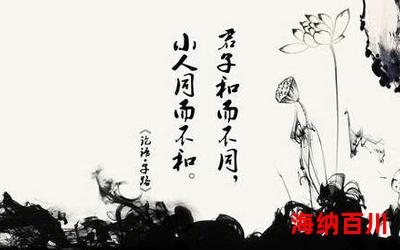 君子和而不同，
小人同而不和。
《论语·子路》
海纳百川